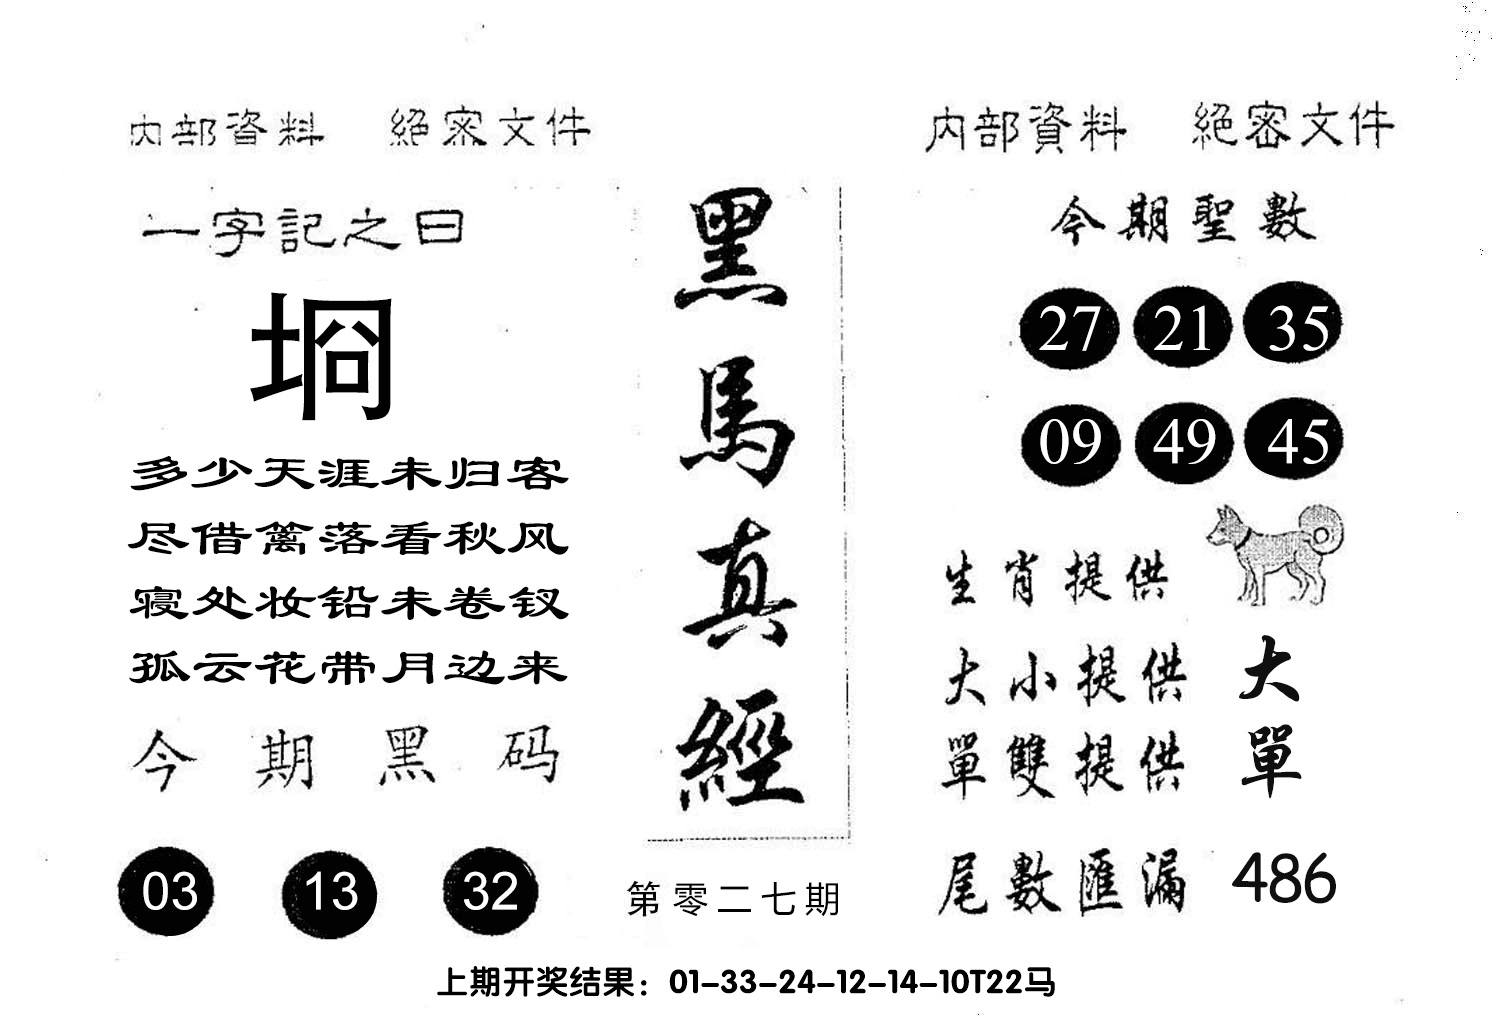 内部資料 絕密文件
一字記之曰
坰
多少天涯未归客
尽借篱落看秋风
寝处妆铅未卷钗
孤云花带月边来
今期黑码
03 13 32
黑馬真經
第零二七期
内部資料 絕密文件
今期聖數
27 21 35
09 49 45
生肖提供
大小提供 大
單雙提供 單
尾數匯漏 486
上期开奖结果：01-33-24-12-14-10T22马